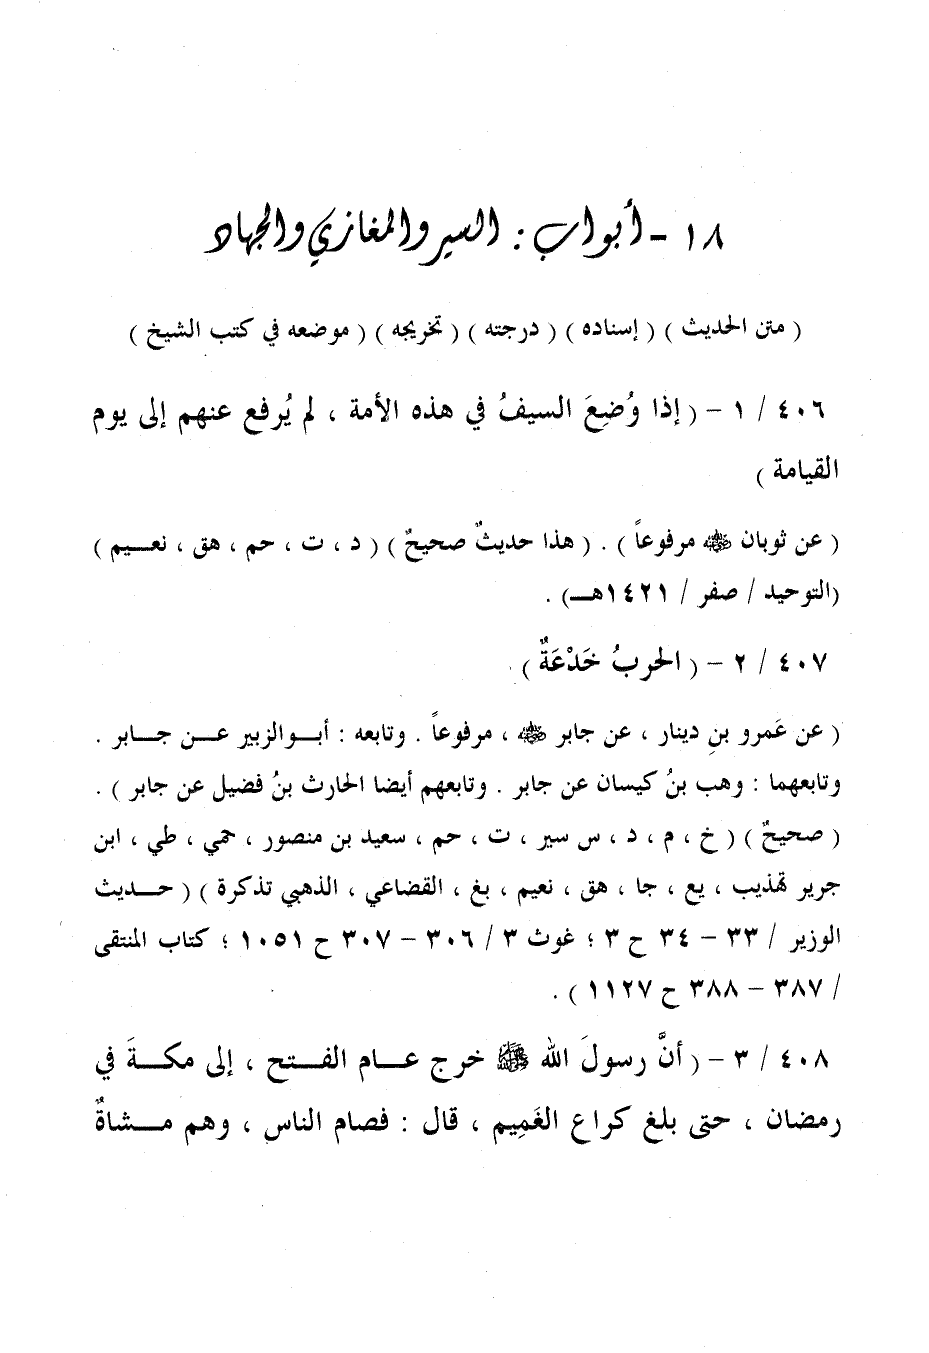 ١٨ - أبواب : السير والمغازي والجهاد
( متن الحديث ) ( إسناده ) ( درجته ) ( تخريجه ) ( موضعه في كتب الشيخ )
٤٠٦ / ١ - ( إذا وُضِعَ السيفُ في هذه الأمة ، لم يُرفع عنهم إلى يوم
القيامة )
( عن ثوبان رضي الله عنه مرفوعاً ) . ( هذا حديثٌ صحيحٌ ) ( د ، ت ، حم ، هق ، نعـيم )
(التوحيد / صفر / ١٤٢١هـ) .
٤٠٧ / ٢ - ( الحربُ خَدْعَةٌ ) .
( عن عَمرو بنِ دينار ، عن جابر رضي الله عنه ، مرفوعاً . وتابعه : أبـو الزبير عـن جـابر .
وتابعهما : وهب بنُ كيسان عن جابر . وتابعهم أيضا الحارث بنُ فضيل عن جابر ) .
( صحيحٌ ) ( خ ، م ، د ، س سير ، ت ، حم ، سعيد بن منصور ، حمي ، طي ، ابن
جرير تهذيب ، يع ، جا ، هق ، نعيم ، بغ ، القضاعي ، الذهبي تذكرة ) ( حـديث
الوزير / ٣٣ - ٣٤ ح ٣ ؛ غوث ٣ / ٣٠٦ - ٣٠٧ ح ١٠٥١ ؛ كتاب المنتقى
/ ٣٨٧ - ٣٨٨ ح ١١٢٧ ) .
٤٠٨ / ٣ - ( أنَّ رسولَ الله ﷺ خرج عـام الفـتح ، إلى مكـةَ في
رمضان ، حتى بلغ كراع الغَمِيم ، قال : فصام الناس ، وهم مـشاةٌ